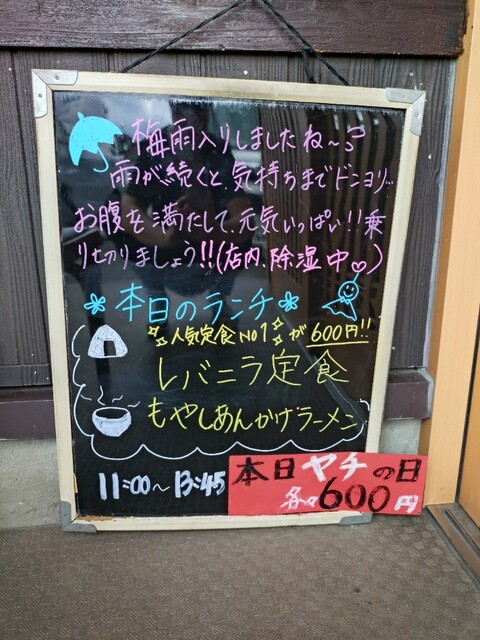 梅雨入りしましたね～
雨が続くと、気持ちまでドンヨリ…
お腹を満たして、元気いっぱい!!乗
り切りましょう!!(店内、除湿中♡)
本日のランチ
人気定食No1が600円!!
レバニラ定食
もやしあんかけラーメン
11:00～13:45
本日ヤチの日
各々600円